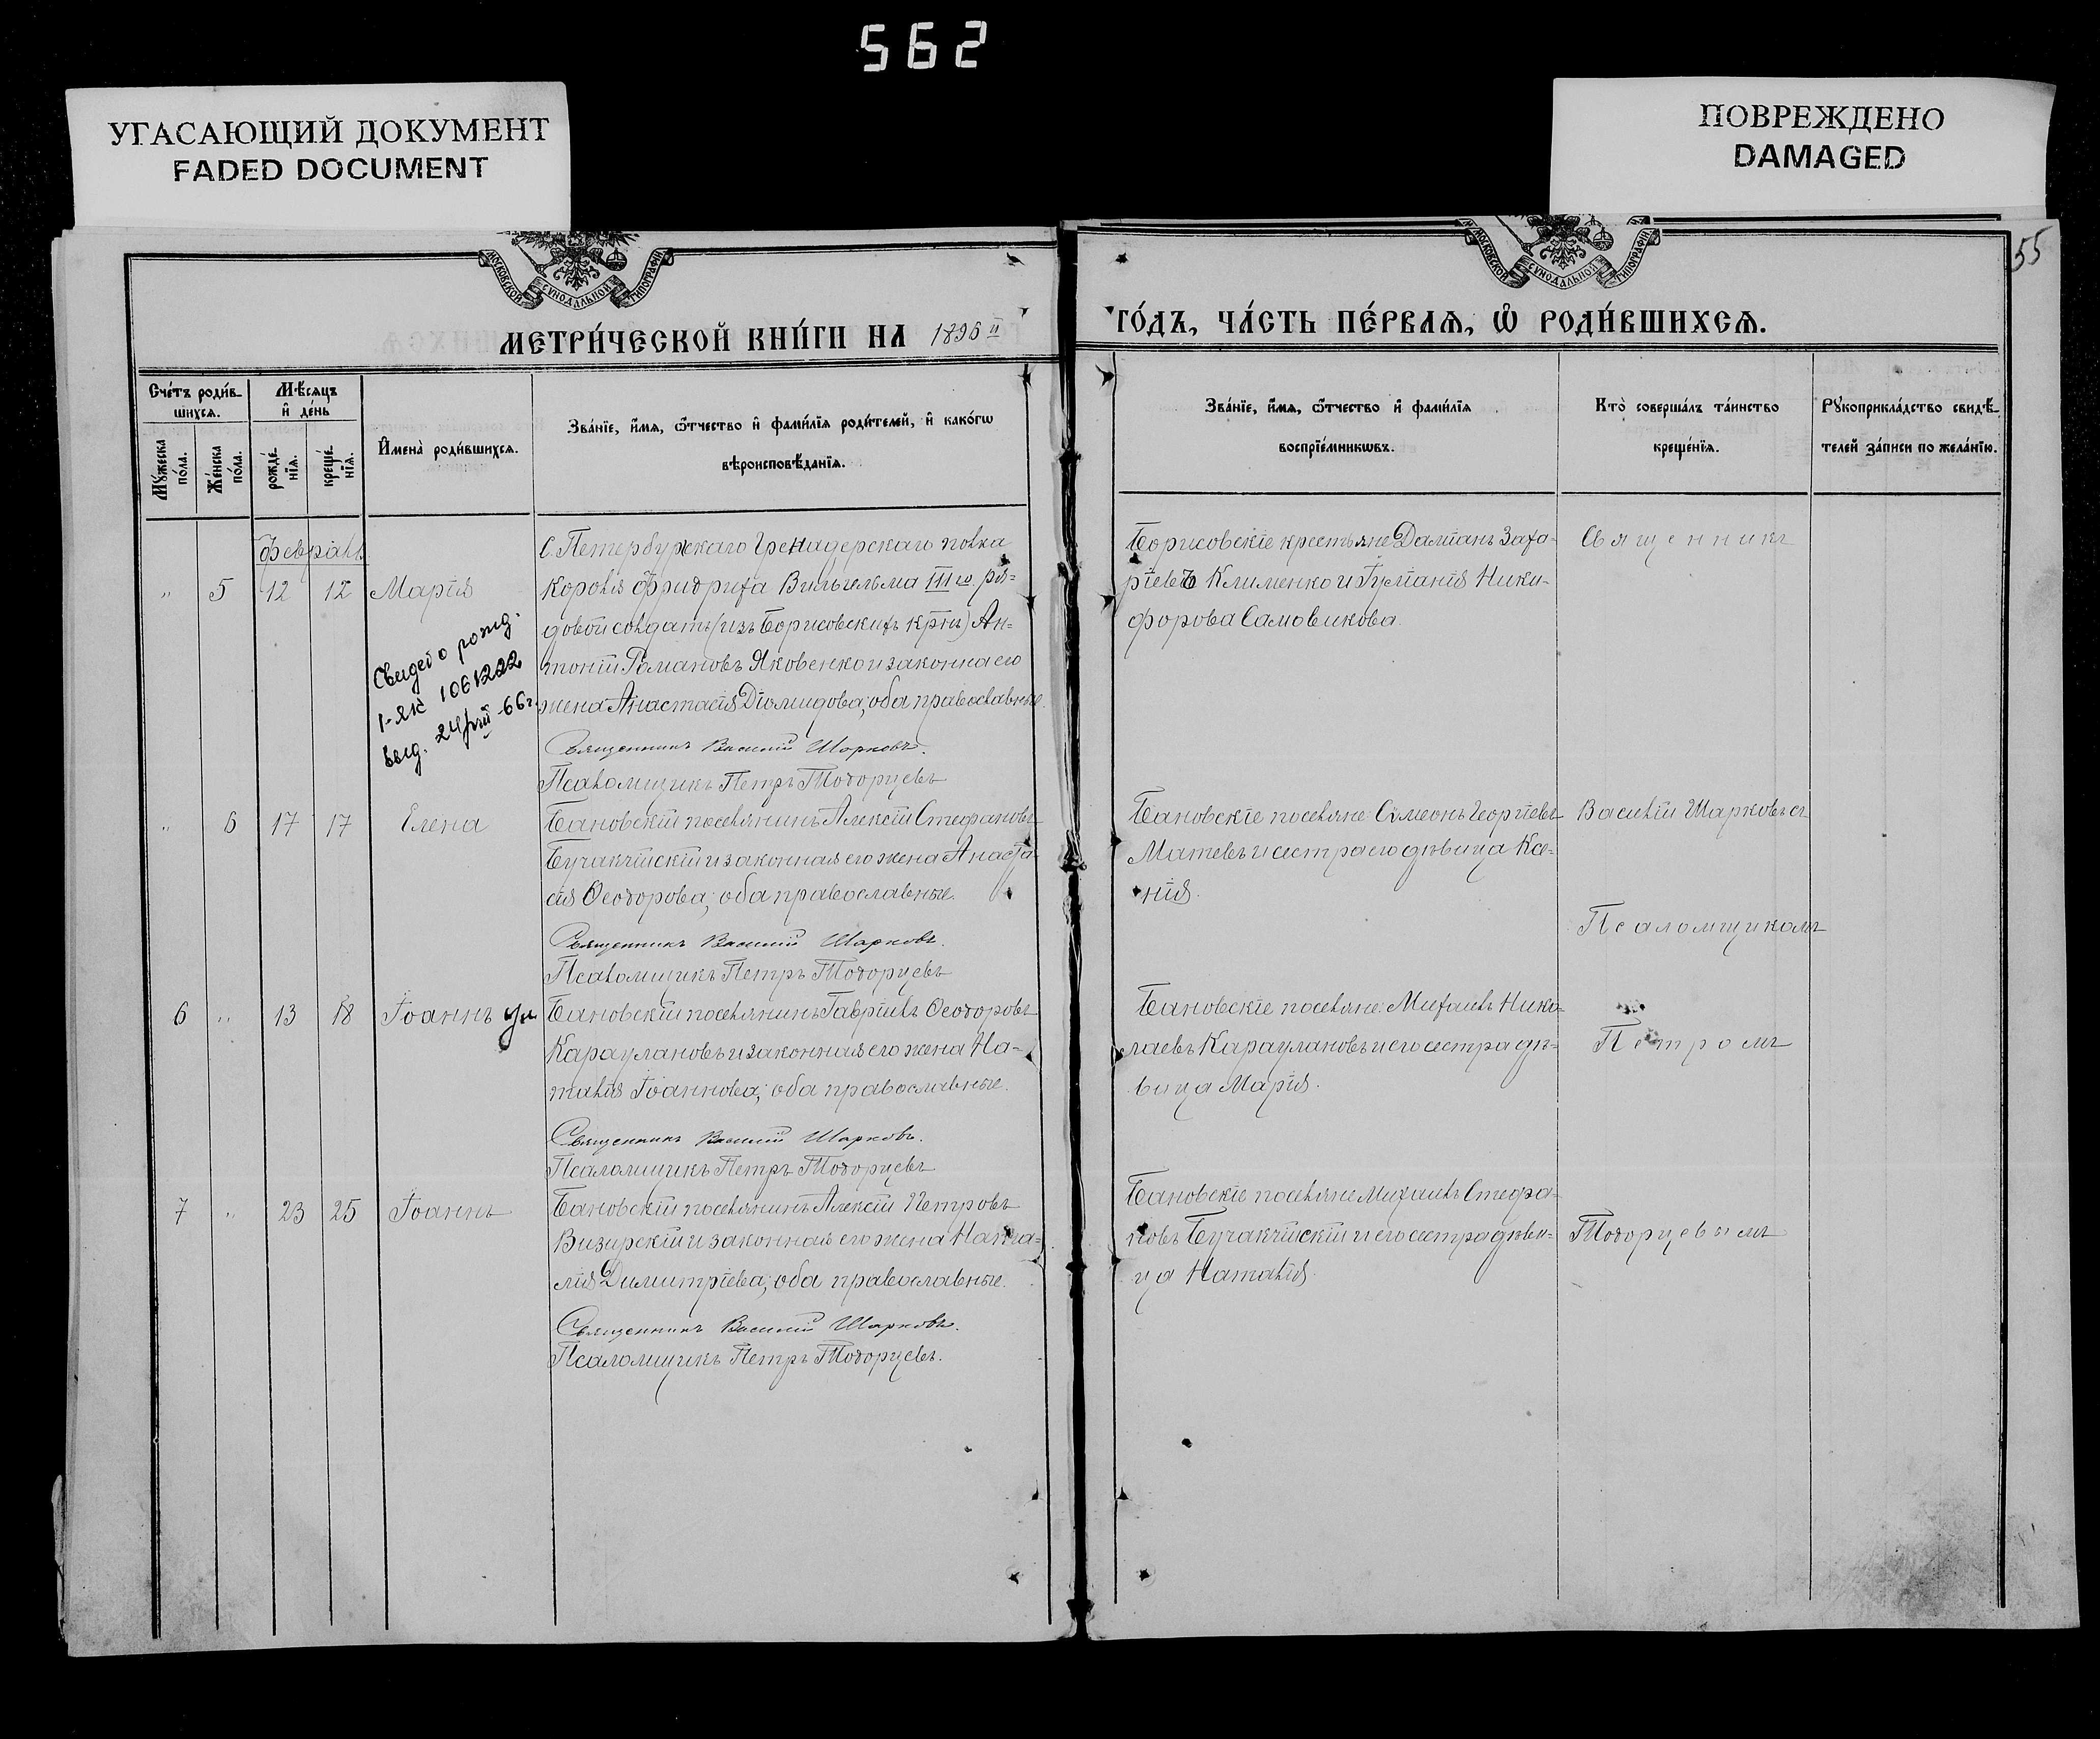 562
УГАСАЮЩИЙ ДОКУМЕНТ
FADED DOCUMENT
ПОВРЕЖДЕНО
DAMAGED
55
МОСКОВСКОЙ СѴНОДАЛЬНОЙ ТИПОГРАФІИ
МОСКОВСКОЙ СѴНОДАЛЬНОЙ ТИПОГРАФІИ
МЕТРИ́ЧЕСКОЙ КНИ́ГИ НА 1896 й
ГО́ДЪ, ЧА́СТЬ ПЕ́РВАѦ, Ѡ҆ РОДИ́ВШИХСѦ.
Сче́тъ роди́в-
шихсѧ.
Мꙋ́жеска по́ла.
Же́нска по́ла.
Мѣ́сѧцъ
и҆ де́нь
рожде́-нїѧ.
креще́-нїѧ.
И҆мена̀ роди́вшихсѧ.
Зва́нїе, и҆́мѧ, ѻ҆́тчество и҆ фами́лїѧ роди́телей, и҆ како́гѡ
вѣроисповѣ́данїѧ.
Зва́нїе, и҆́мѧ, ѻ҆́тчество и҆ фами́лїѧ
воспрїе́мникѡвъ.
Кто̀ соверша́лъ та́инство
креще́нїѧ.
Рꙋкоприкла́дство свидѣ́-
телей за́писи по жела́нїю.
Февраль
" 5 12 12 Марія
С. Петербургскаго Гренадерскаго полка
Короля Фридриха Вильгельма III го ря=
довой солдатъ (изъ Борисовскихъ крнъ) Ан=
тоній Романовъ Яковенко и законна его
жена Анастасія Діомидова; оба православные.
Священникъ Василій Шарковъ.
Псаломщикъ Петръ Тодорцевъ
Свидет о рожд.
I-ЯК 1061222
выд. 24/VIII-66г.
Борисовскіе крестьяне Даміанъ Заха-
ріевъ Клименко и Іуліанія Ники-
форова Самовикова.
Священникъ
" 6 17 17 Елена
Бановскій поселянинъ Алексій Стефановъ
Бучакчійскій и законная его жена Анаста-
сія Ѳеодорова; оба православные.
Священникъ Василій Шарковъ.
Псаломщикъ Петръ Тодорцевъ
Бановскіе поселяне: Сѵмеонъ Георгіевъ
Матевъ и сестра его дѣвица Ксе-
нія.
Василій Шарковъ съ
Псаломщикомъ
6 " 13 18 Іоаннъ ум
Бановскій поселянинъ Гавріилъ Ѳеодоровъ
Караулановъ и законная его жена На=
талія Іоаннова; оба православные.
Священникъ Василій Шарковъ.
Псаломщикъ Петръ Тодорцевъ
Бановскіе поселяне: Михаилъ Нико-
лаевъ Караулановъ и его сестра дѣ-
вица Марія.
Петромъ
7 " 23 25 Іоаннъ
Бановскій поселянинъ Алексій Петровъ
Визирскій и законная его жена Ната=
лія Димитріева; оба православные.
Священникъ Василій Шарковъ.
Псаломщикъ Петръ Тодорцевъ.
Бановскіе поселяне Михаилъ Стефа-
новъ Бучакчійскій и его сестра дѣви-
ца Наталія.
Тодорцевымъ